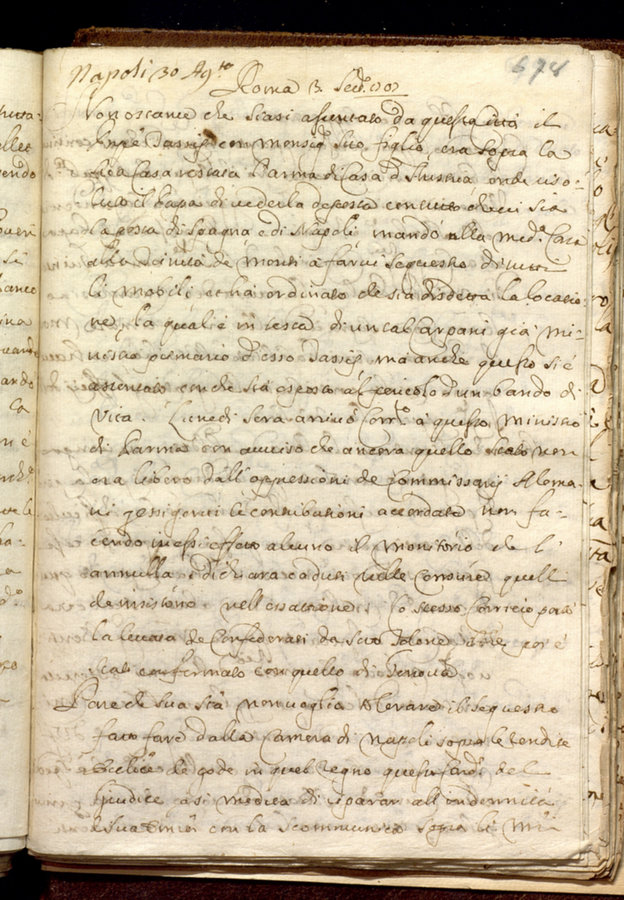 674
Napoli 30 Ag.to
Roma 3. Sett.
Non ostante che siasi assentato da questa Città il
Tassis con Monsig. suo figlio, era sopra la
sua Casa restata l'arma di Casa d'Austria onde riso-
luto il Papa di vederla deposta con tutto che vi sia
la posta di Spagna e di Napoli mandò alla med.a Casa
de Monti a farvi sequestro di tutti
li Mobili et hà ordinato che sia disdetta la locatio-
ne, la quale è in testa di un tal Carpani già Mi-
nistro primario di esso Tassis, ma anche questo si è
assentato con che sta esposto al pericolo d'un bando di
Vita. Lunedi sera arrivò Corr.o a questo Ministro
di Parma con avviso che ancora quello Stato non
era libero dall'oppressioni de Commissarij Alema-
ni per esigervi le contributioni accordate non fa-
cendo in essi effetto alcuno il Monitorio che l'
annulla e dichiara caduti nelle Censure quelli
che insistono nell'esattione. Lo stesso Corriero portò
la levata de Confederati da sotto Tolone che poi è
stata confermata con quello di Genova
Pare che Sua S.tà non voglia tolerare il sequestro
fatto fare dalla Camera di Napoli sopra le rendite
che gode in quel Regno questo Card.
Giudice e si medita di riparar all'indennità
di sua con la scommunica sopra li Mi-